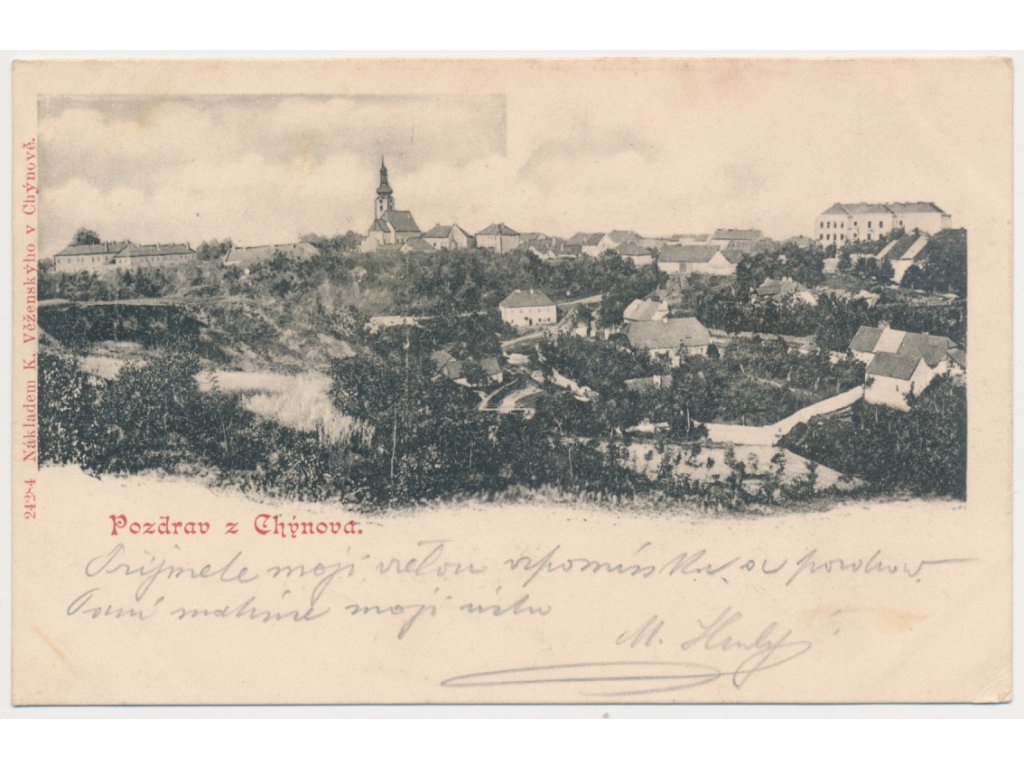 24284 Nákladem K. Věženského v Chýnově.
Pozdrav z Chýnova.
Prijmete moji vzpomínku a pozdrav.
Paní matince moji úctu
M.